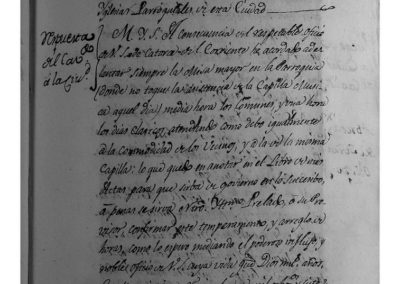 Iglesias Parroquiales de esta Ciudad
Respuesta
del Car.
á la Ciu.d
M. Y. S. A Consecuencia del respetable oficio
de V. S. de Catorce del Corriente, he acordado
siempre la Misa mayor en la Parroquia
(donde no toque la asistencia de la Capilla Musi-
ca aquel dia) media hora los Comunes, y una hora
los dias Clasicos, atendiendo como debo igualmente
á la comodidad de los Vecinos, y á la de la misma
Capilla: lo que quedo en anotar en el Libro de mis
Actas para que sirba de govierno en lo sucesibo,
á penas se sirva el Prelado, ó su Pro-
visor, confirmar este temperamento, y arreglo de
horas, como lo espero mediando el poderoso influjo, y
noble oficio de V. S. cuya vida que Dios m.s años.